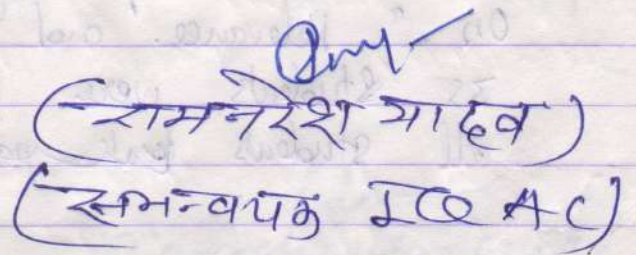 (रामनरेश यादव)
(समन्वयक IQAC)